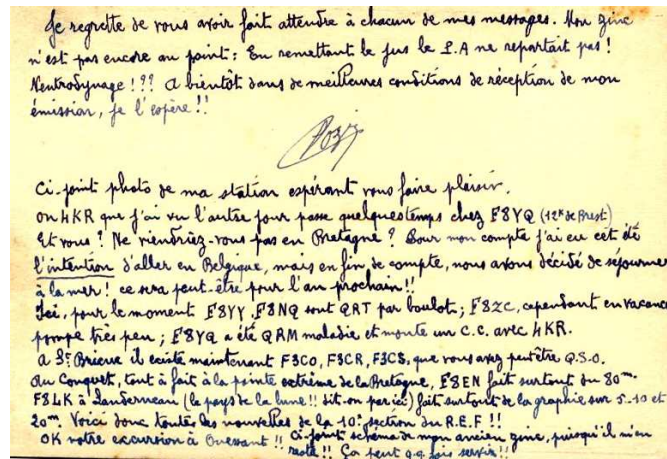 Je regrette de vous avoir fait attendre à chacun de mes messages. Mon zinc
n'est pas encore au point : En remettant le jus le P.A ne repartait pas !
Neutrodynage !?? A bientôt dans de meilleures conditions de réception de mon
émission, je l'espère !!
Ci-joint photo de ma station espérant vous faire plaisir.
ON4KR que j'ai vu l'autre jour passe quelques temps chez F8YQ (12K de Brest)
Et vous ? Ne viendriez-vous pas en Bretagne ? Pour mon compte j'ai eu cet été
l'intention d'aller en Belgique, mais en fin de compte, nous avons décidé de séjourner
à la mer ! ce sera peut-être pour l'an prochain !!
Ici, pour le moment F8YY, F8NQ sont QRT par boulot ; F8ZC, cependant en vacances
pompe très peu ; F8YQ a été QRM maladie et monte un C.C. avec 4KR.
A St Brieuc il existe maintenant F3CO, F3CR, F3CS, que vous avez peut être Q.S.O.
Au Conquet, tout à fait à la pointe extrême de la Bretagne, F8EN fait surtout du 80m.
F8LK à Landerneau (le pays de la lune !! dit-on par ici) fait surtout de la graphie sur 5-10 et
20m. Voici donc toutes les nouvelles de la 10e section du R.E.F !!
OK votre excursion à Ouessant !! Ci-joint schéma de mon ancien zinc, puisqu'il m'en
reste !! Ça peut q.q. fois servir !!